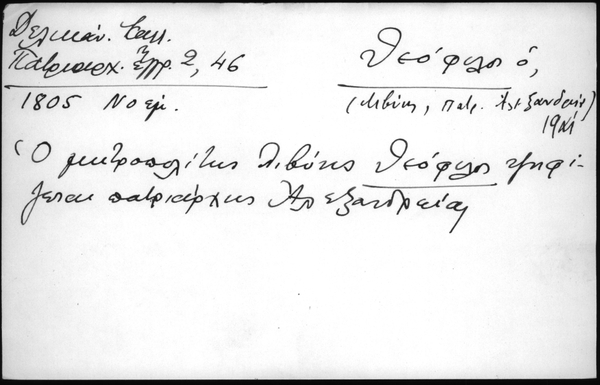 Δελικάν. Καλλ.
Πατριαρχ. Ἔγγρ. 2, 46
1805 Νοεμ.
Θεόφιλος ὁ,
(Λιβύης, πατρ. Ἀλεξανδρείας)
Ὁ μητροπολίτης Λιβύης Θεόφιλος ψηφί-
ζεται πατριάρχης Ἀλεξανδρείας